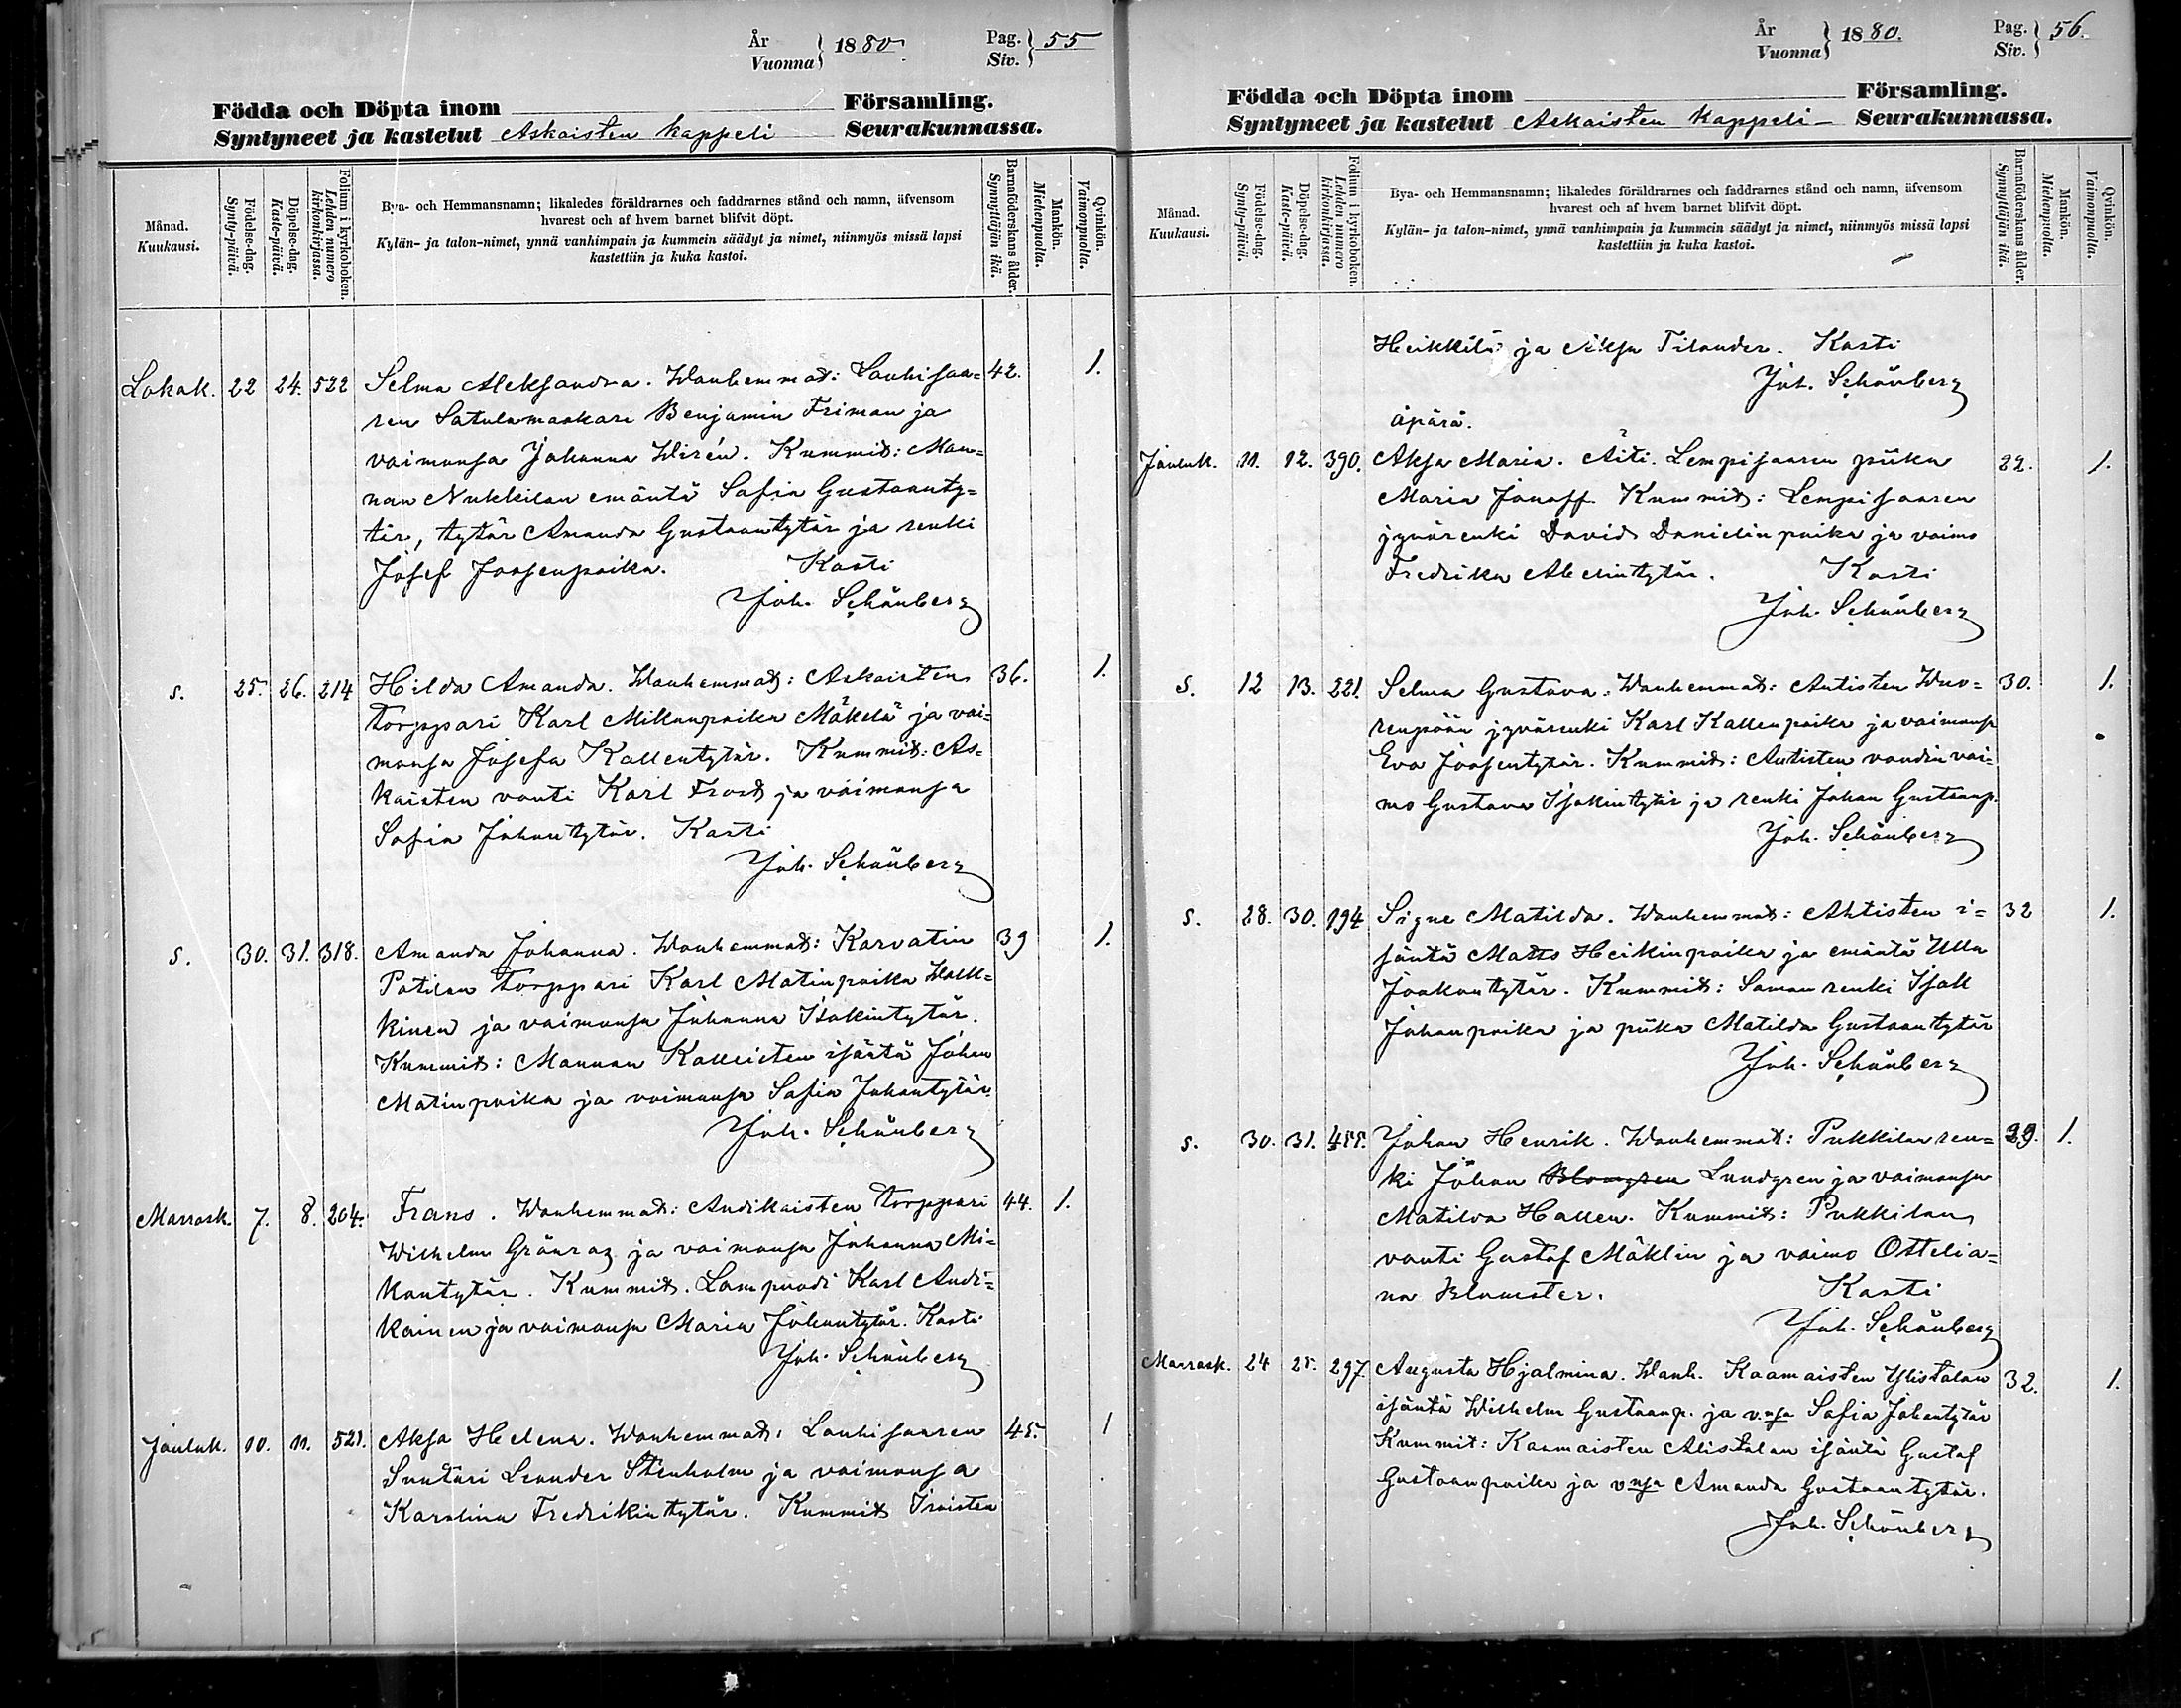 År
Vuonna } 1880.
Pag.
Siv. } 55
Födda och Döpta inom Församling.
Syntyneet ja kastetut Askaisten kappeli Seurakunnassa.
Månad.
Kuukausi.
Födelse-dag.
Synty-päivä.
Döpelse-dag.
Kaste-päivä.
Folium i kyrkoboken.
Lehden numero
kirkonkirjassa.
Bya- och Hemmansnamn; likaledes föräldrarnes och faddrarnes stånd och namn, äfvensom
hvarest och af hvem barnet blifvit döpt.
Kylän- ja talon-nimet, ynnä vanhimpain ja kummein säädyt ja nimet, niinmyös missä lapsi
kastettiin ja kuka kastoi.
Barnaföderskans ålder.
Synnyttäjän ikä.
Mankön.
Miehenpuolia.
Qvinkön.
Vaimonpuolia.
Lokak. 22 24. 522 Selma Aleksandra. Wanhemmat: Louhisaa= 42. 1.
ren Satulamaakari Benjamin Friman ja
vaimonsa Johanna Wirén. Kummit: Man=
nan Nukkilan emäntä Sofia Gustaanty=
tär, tytär Amanda Gustaantytär ja renki
Josef Joosenpoika. Kasti
Joh. Schönberg
s. 25. 26. 214 Hilda Amanda. Wanhemmat: Askaisten 36. 1.
torppari Karl Mikkanpoika Mäkelä ja vai=
monsa Josefa Kallentytär. Kummit: As=
kaisten vouti Karl Frost ja vaimonsa
Sofia Johantytär. Kasti
Joh. Schönberg
s. 30. 31. 318. Amanda Johanna. Wanhemmat: Karvatin 39 1.
Patilan torppari Karl Matinpoika
kinen ja vaimonsa Johanna Isakintytär.
Kummit: Mannan Kalleisten isäntä Johan
Matinpoika ja vaimonsa Sofia Johantytär.
Joh. Schönberg
Marrask. 7. 8. 204. Frans. Wanhemmat: Andikaisten torppari 44. 1.
Wilhelm Grönroz ja vaimonsa Johanna Mi=
kontytär. Kummit. Lampuodi Karl Andi=
kainen ja vaimonsa Maria Johantytär. Kasti
Joh. Schönberg
Jouluk. 10. 11. 521. Aksa Helena. Wanhemmat: Louhisaaren 45. 1
Suutari Leander Stenholm ja vaimonsa
Karolina Fredrikintytär. Kummit Iroisten
År
Vuonna } 1880.
Pag.
Siv. } 56.
Födda och Döpta inom Församling.
Syntyneet ja kastetut Askaisten kappeli Seurakunnassa.
Månad.
Kuukausi.
Födelse-dag.
Synty-päivä.
Döpelse-dag.
Kaste-päivä.
Folium i kyrkoboken.
Lehden numero
kirkonkirjassa.
Bya- och Hemmansnamn; likaledes föräldrarnes och faddrarnes stånd och namn, äfvensom
hvarest och af hvem barnet blifvit döpt.
Kylän- ja talon-nimet, ynnä vanhimpain ja kummein säädyt ja nimet, niinmyös missä lapsi
kastettiin ja kuka kastoi.
Barnaföderskans ålder.
Synnyttäjän ikä.
Mankön.
Miehenpuolia.
Qvinkön.
Vaimonpuolia.
Heikkilä ja Aksa Tilander. Kasti
Joh. Schönberg
äpärä.
Jouluk. 11. 12. 390. Aksa Maria. Äiti. Lempisaaren piika 22. 1.
Maria Jonoff. Kummit: Lempisaaren
jyvärenki David Danielinpoika ja vaimo
Fredrika Abelintytär. Kasti
Joh. Schönberg
s. 12 13. 221. Selma Gustava. Wanhemmat: Autisten Wuo= 30. 1.
renpään jyvärenki Karl Kallenpoika ja vaimonsa
Eva Joosentytär. Kummit: Autisten voudin vai=
mo Gustava Isakintytär ja renki Johan Gustaanp.
Joh. Schönberg
s. 28. 30. 194 Signe Matilda. Wanhemmat: Ahtisten i= 32 1.
säntä Matts Heikinpoika ja emäntä Ulla
Jaakontytär. Kummit: Saman renki Isak
Johanpoika ja piika Matilda Gustaantytär
Joh. Schönberg
s. 30. 31. 455. Johan Henrik. Wanhemmat: Pukkilan ren= 29. 1.
ki Johan Blomgren Lundgren ja vaimonsa
Matilda Hallen. Kummit: Pukkilan
vouti Gustaf Mäklin ja vaimo Ottelia=
na Blomster. Kasti
Joh. Schönberg
Marrask. 24 25. 297. Augusta Hjalmina. Wanh. Kaamaisten Ylistalan 32. 1.
isäntä Wilhelm Gustaanp. ja v.nsa Sofia Johantytär
Kummit: Kaamaisten Alistalan isäntä Gustaf
Gustaanpoika ja vnsa Amanda Gustaantytär.
Joh. Schönberg